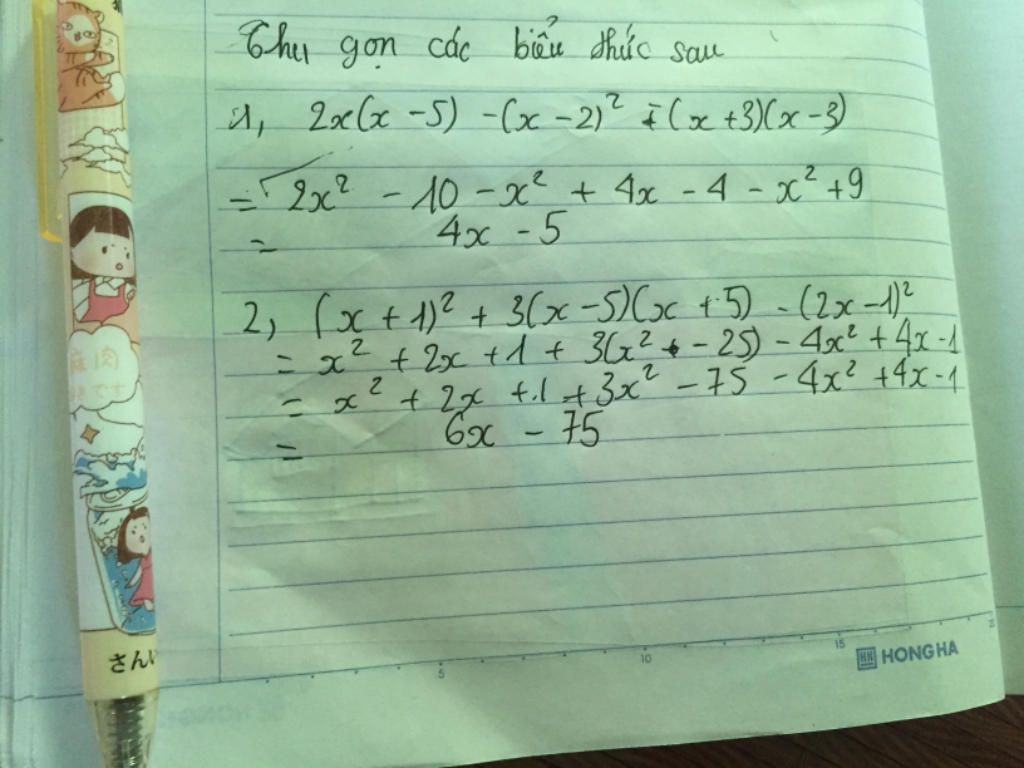 Thu gọn các biểu thức sau
1, 2x(x - 5) - (x - 2)² - (x + 3)(x - 3)
= 2x² - 10 - x² + 4x - 4 - x² + 9
= 4x - 5
2, (x + 1)² + 3(x - 5)(x + 5) - (2x - 1)²
= x² + 2x + 1 + 3(x² - 25) - 4x² + 4x - 1
= x² + 2x + 1 + 3x² - 75 - 4x² + 4x - 1
= 6x - 75
肉
です
さんい
5 10 15
HH HONG HA